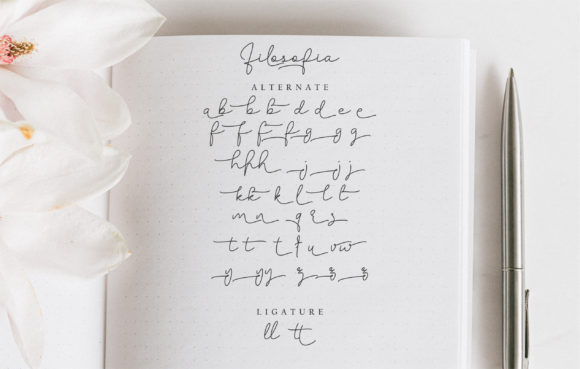 Filosofia
ALTERNATE
a b b b d d e e
f f f f g g g
h h h j j j
k k k l l t
m n q r s
t t t f u v w
y y y z z z
LIGATURE
ll tt